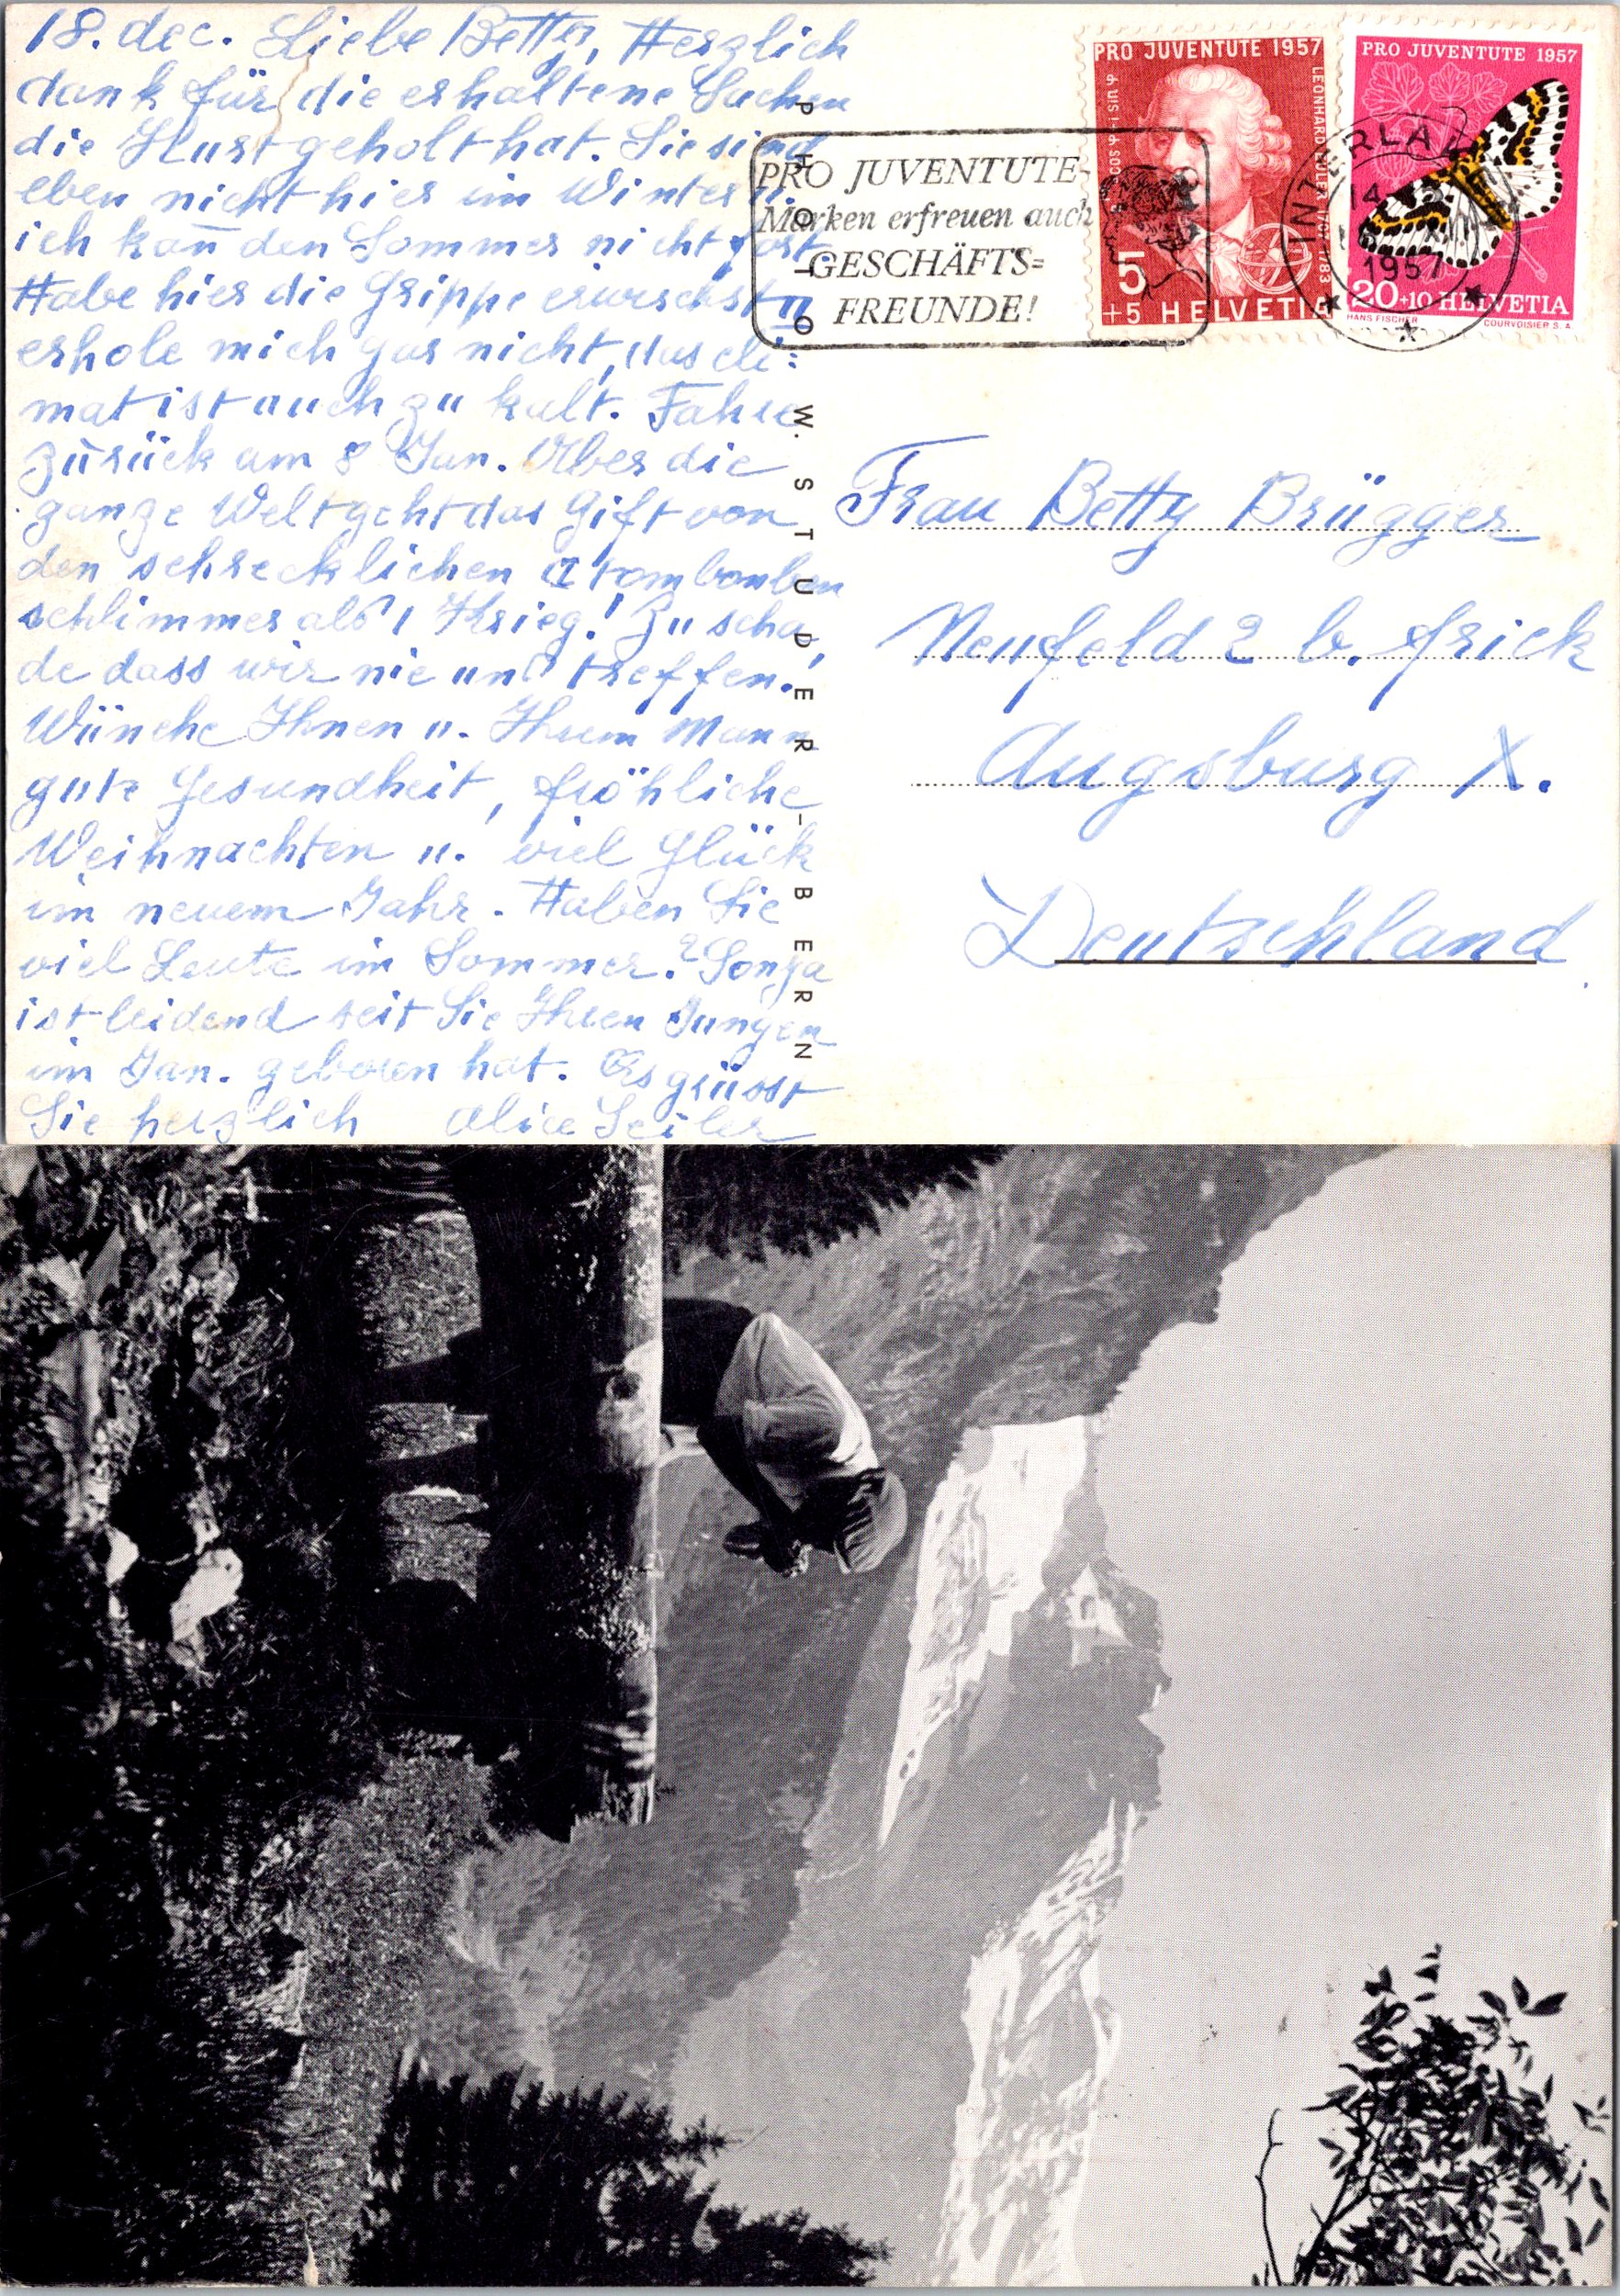 18. dec. Liebe Betty, Herzlich
dank für die erhaltene Sachen
die Kurt geholt hat. Sie sind
eben nicht hier im Winter u.
ich kan̄ den Sommer nicht fort.
Habe hier die Grippe erwischt u
erhole mich gar nicht, das cli=
mat ist auch zu kalt. Fahre
zurück am 8 Jan. Über die
ganze Welt geht das Gift von
den schrecklichen Atombomben
schlimmer als 1 Krieg! Zu scha,
de dass wir nie uns treffen.
Wünche Ihnen u. Ihrem Mann
gute Gesundheit, fröhliche
Weihnachten u. viel Glück
im neuem Jahr. Haben Sie
viel Leute im Sommer? Sonja
ist leidend seit Sie Ihren Jungen
im Jan. geboren hat. Es grüsst
Sie herzlich Alice Seiler
PHOTO W. STUDER - BERN
PRO JUVENTUTE-
Marken erfreuen auch
GESCHÄFTS=
FREUNDE!
PRO JUVENTUTE 1957
cos φ + i sin φ
LEONHARD EULER 1707-1783
5
+5 HELVETIA
PRO JUVENTUTE 1957
20+10 HELVETIA
HANS FISCHER
COURVOISIER S.A.
INTERLAKEN
14
1957
Frau Betty Brügger
Neufeld 2 b. Frick
Augsburg X.
Deutschland